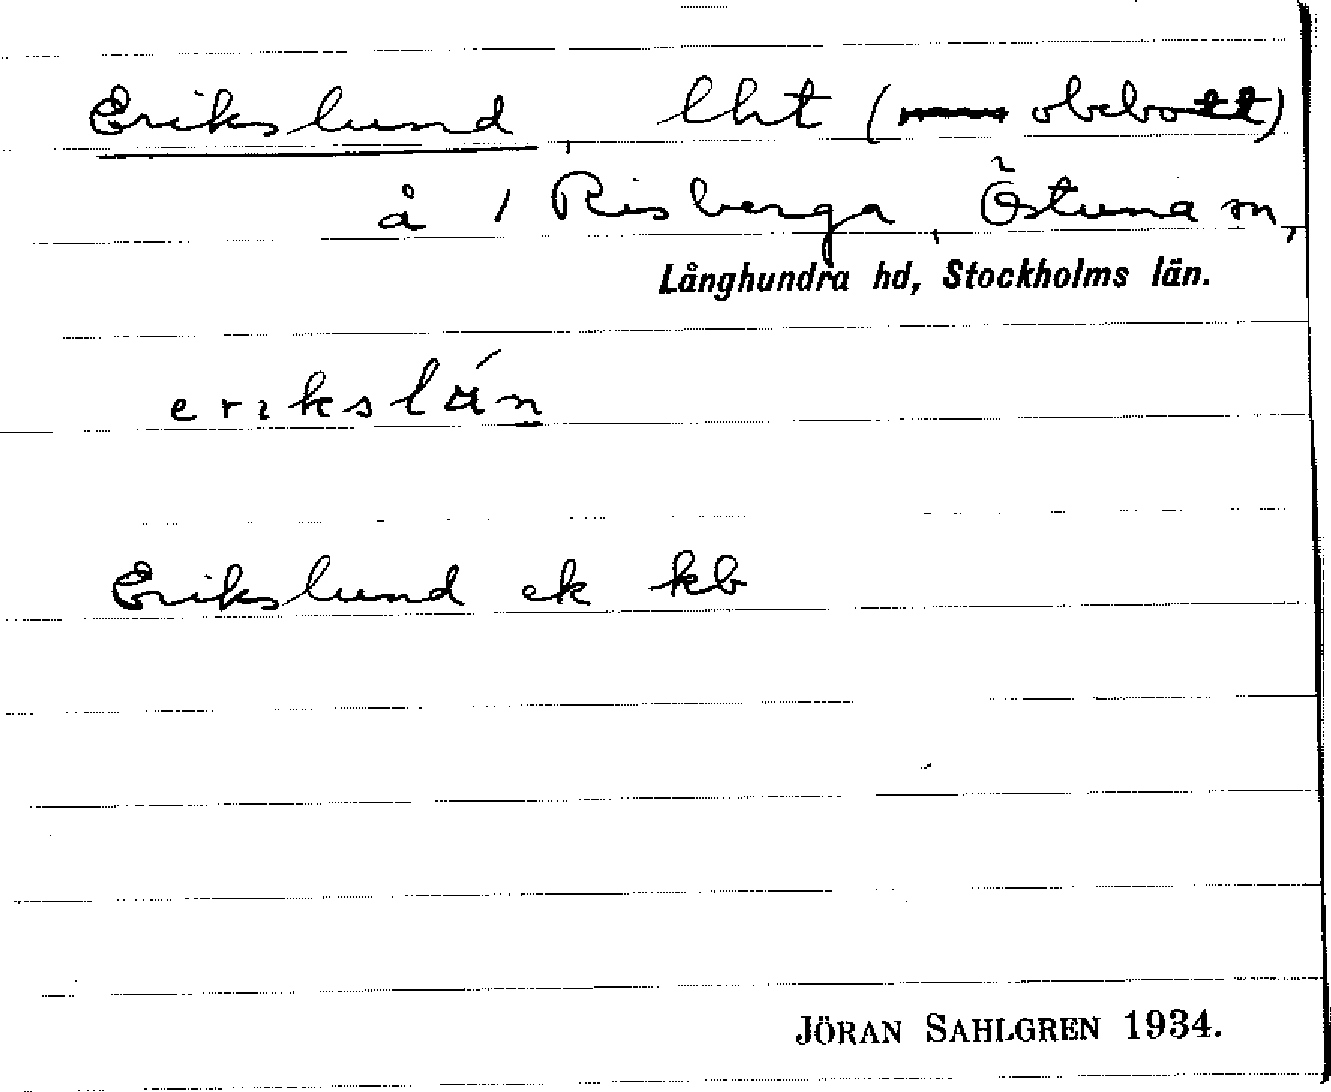 Erikslund, lht ( obebott)
å 1 Risberga, Östuna sn,
Långhundra hd, Stockholms län.
erikslán
Erikslund ek kb
JÖRAN SAHLGREN 1934.